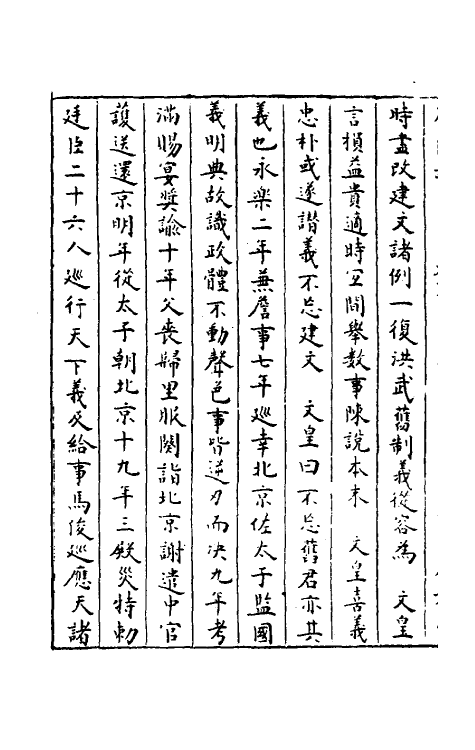 時盡改建文諸例一復洪武舊制義從容為　文皇
言損益貴適時宜間舉數事陳說本末　文皇喜義
忠朴或遂譖義不忘建文　文皇曰不忘舊君亦其
義也永樂二年兼詹事七年巡幸北京佐太子監國
義明典故識政體不動聲色事皆迎刃而决九年考
滿賜宴奨諭十年父喪歸里服闋詣北京謝遣中官
護送還京明年從太子朝北京十九年三殿災特勅
廷臣二十六人巡行天下義及給事馬俊巡應天諸